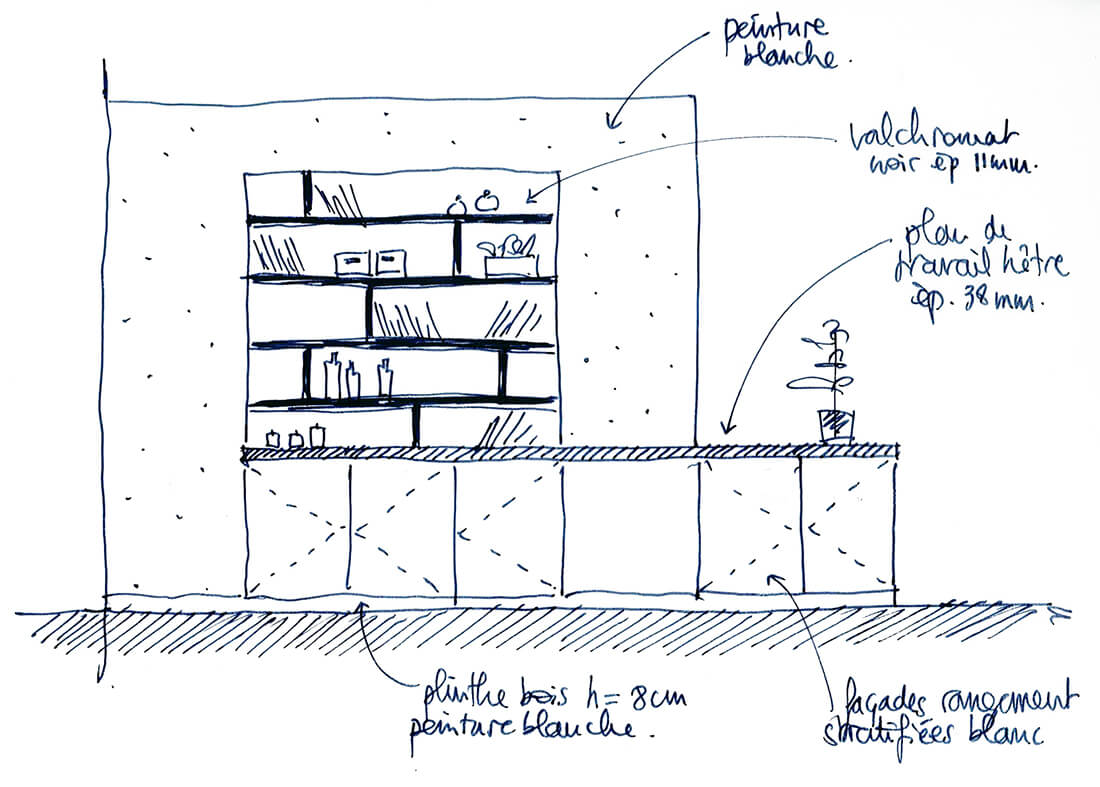 peinture
blanche.
valchromat
noir ép 11mm.
plan de
travail hêtre
ép. 38mm.
plinthe bois h= 8cm
peinture blanche.
façades rangement
stratifiées blanc